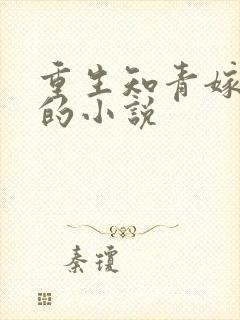 重生知青嫁
的小说
秦琼